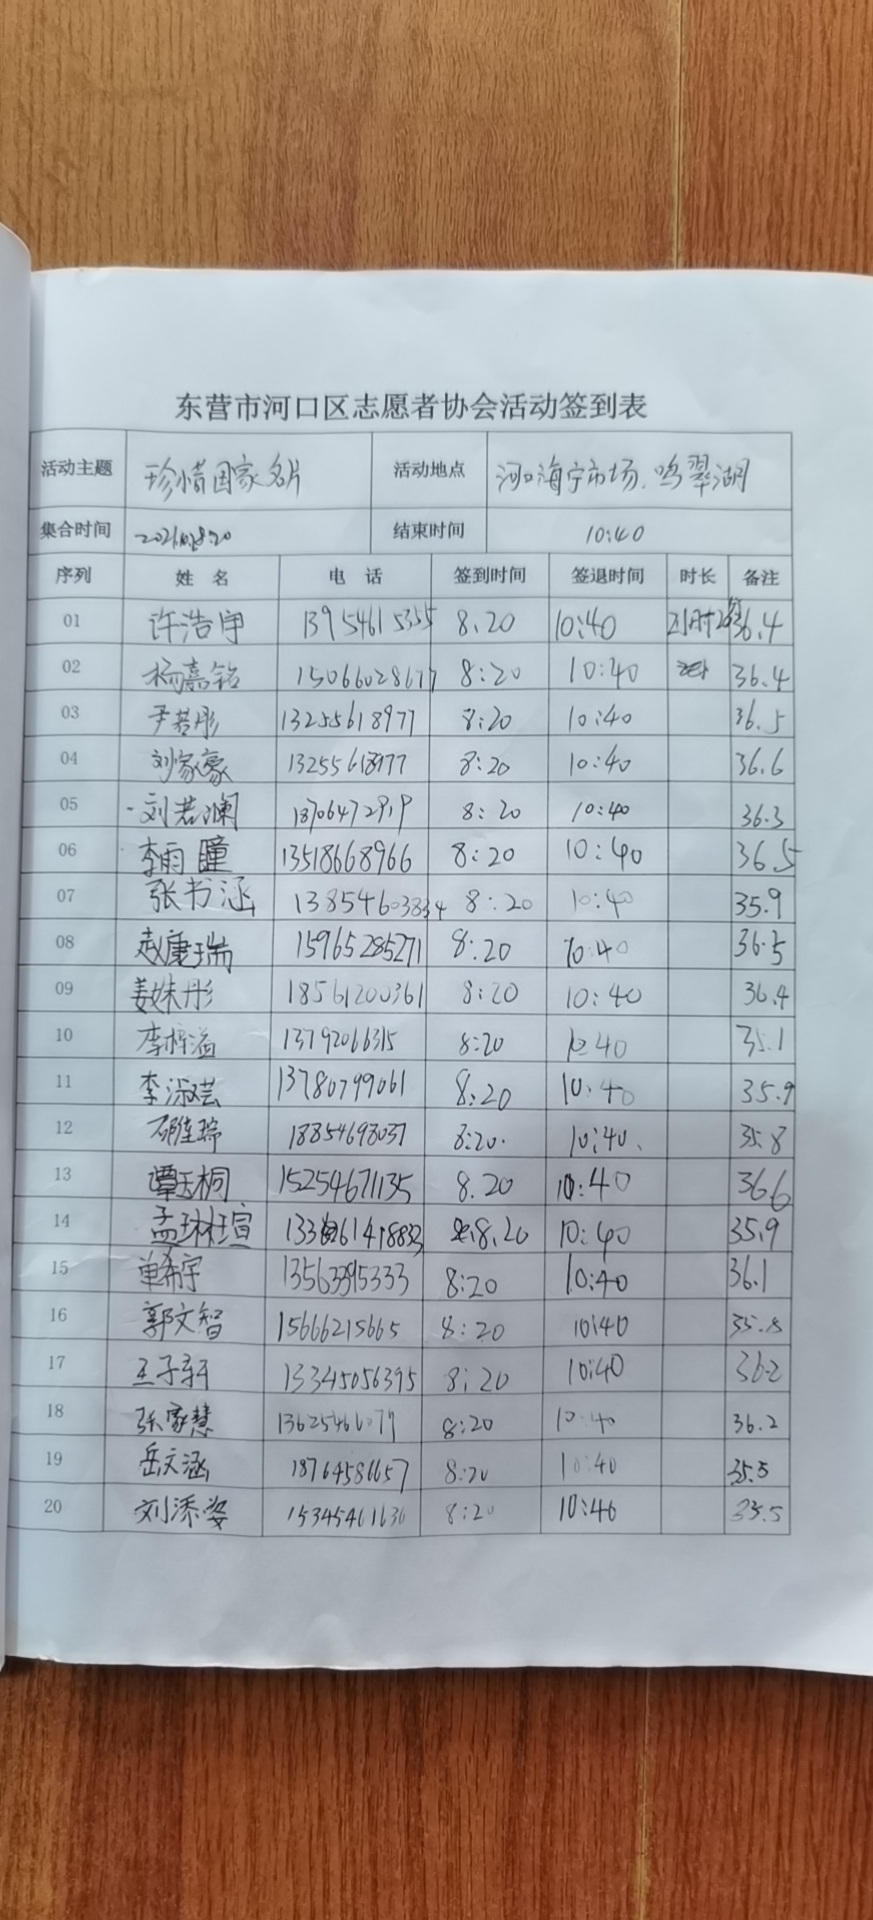 东营市河口区志愿者协会活动签到表
活动主题 珍惜国家名片 活动地点 河口海宁市场、鸣翠湖
集合时间 8:20 结束时间 10:40
序列 姓 名 电 话 签到时间 签退时间 时长 备注
01 许浩宇 13954615355 8.20 10:40 2小时 36.4
02 杨嘉铭 15066028677 8:20 10:40 36.4
03 尹若彤 13255618977 8:20 10:40 36.5
04 刘家豪 13255618977 8:20 10:40 36.6
05 刘若澜 8:20 10:40 36.3
06 李雨瞳 13518668966 8:20 10:40 36.5
07 张书涵 13854603834 8:20 10:40 35.9
08 赵康瑞 15965285271 8:20 10:40 36.5
09 姜姝彤 18561200361 8:20 10:40 36.4
10 李梓溢 13792066315 8:20 10 40 35.1
11 李淑芸 13780799061 8:20 10:40 35.9
12 18854698037 8:20. 10:40 35.8
13 谭玉桐 15254671135 8.20 10:40 36.6
14 孟琳瑄 8.20 10:40 35.9
15 单希宇 13563395333 8:20 10:40 36.1
16 郭文智 15666215665 8:20 10:40 35.8
17 王子轩 13345056395 8:20 10:40 36.2
18 张家慧 8:20 10:40 36.2
19 岳文涵 18764586657 8:20 10:40 35.5
20 刘添姿 8:20 10:40 35.5